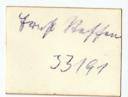 Ernst Steffen
33191